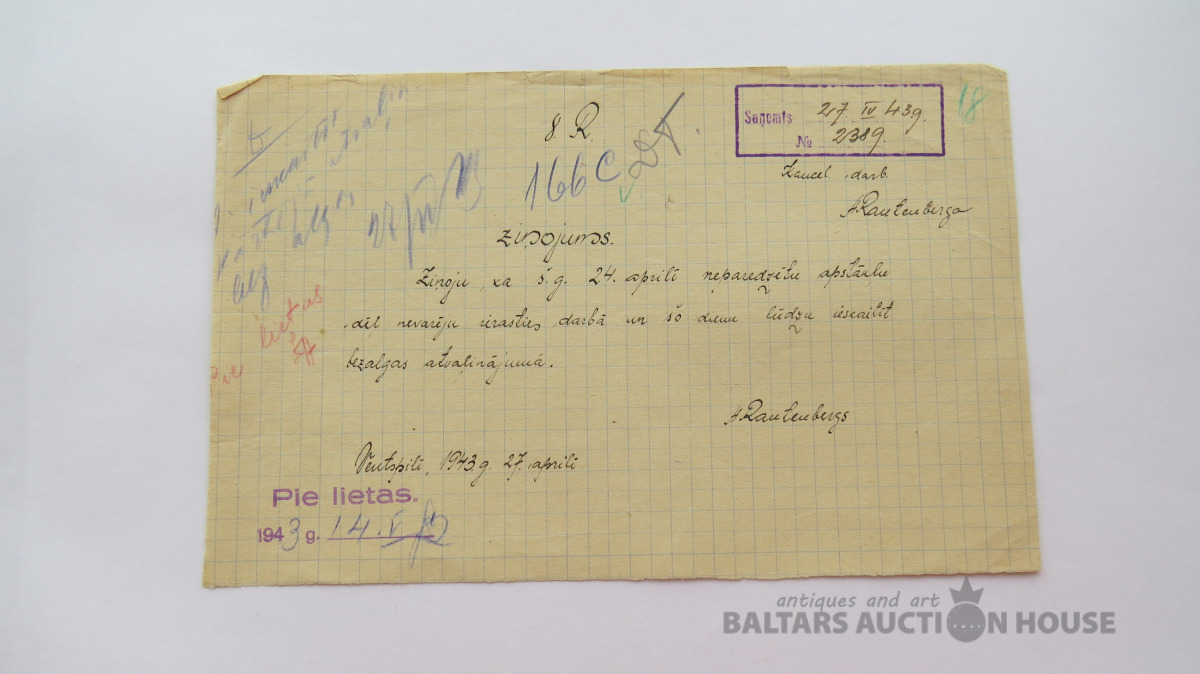 8. R.
166 C
18
Saņemts 27 IV 43g.
№ 2389.
Kancel. darb.
A.Rautenberga
Ziņojums.
Ziņoju, ka š.g. 24. aprilī neparedzētu apstākļu
dēļ nevarēju ierasties darbā un šo dienu lūdzu ieskaitīt
bezalgas atvaļinājumā.
A.Rautenbergs
Ventspilī, 1943.g. 27. aprilī
Pie lietas
Pie lietas.
1943 g. 14. V
antiques and art
BALTARS AUCTION HOUSE